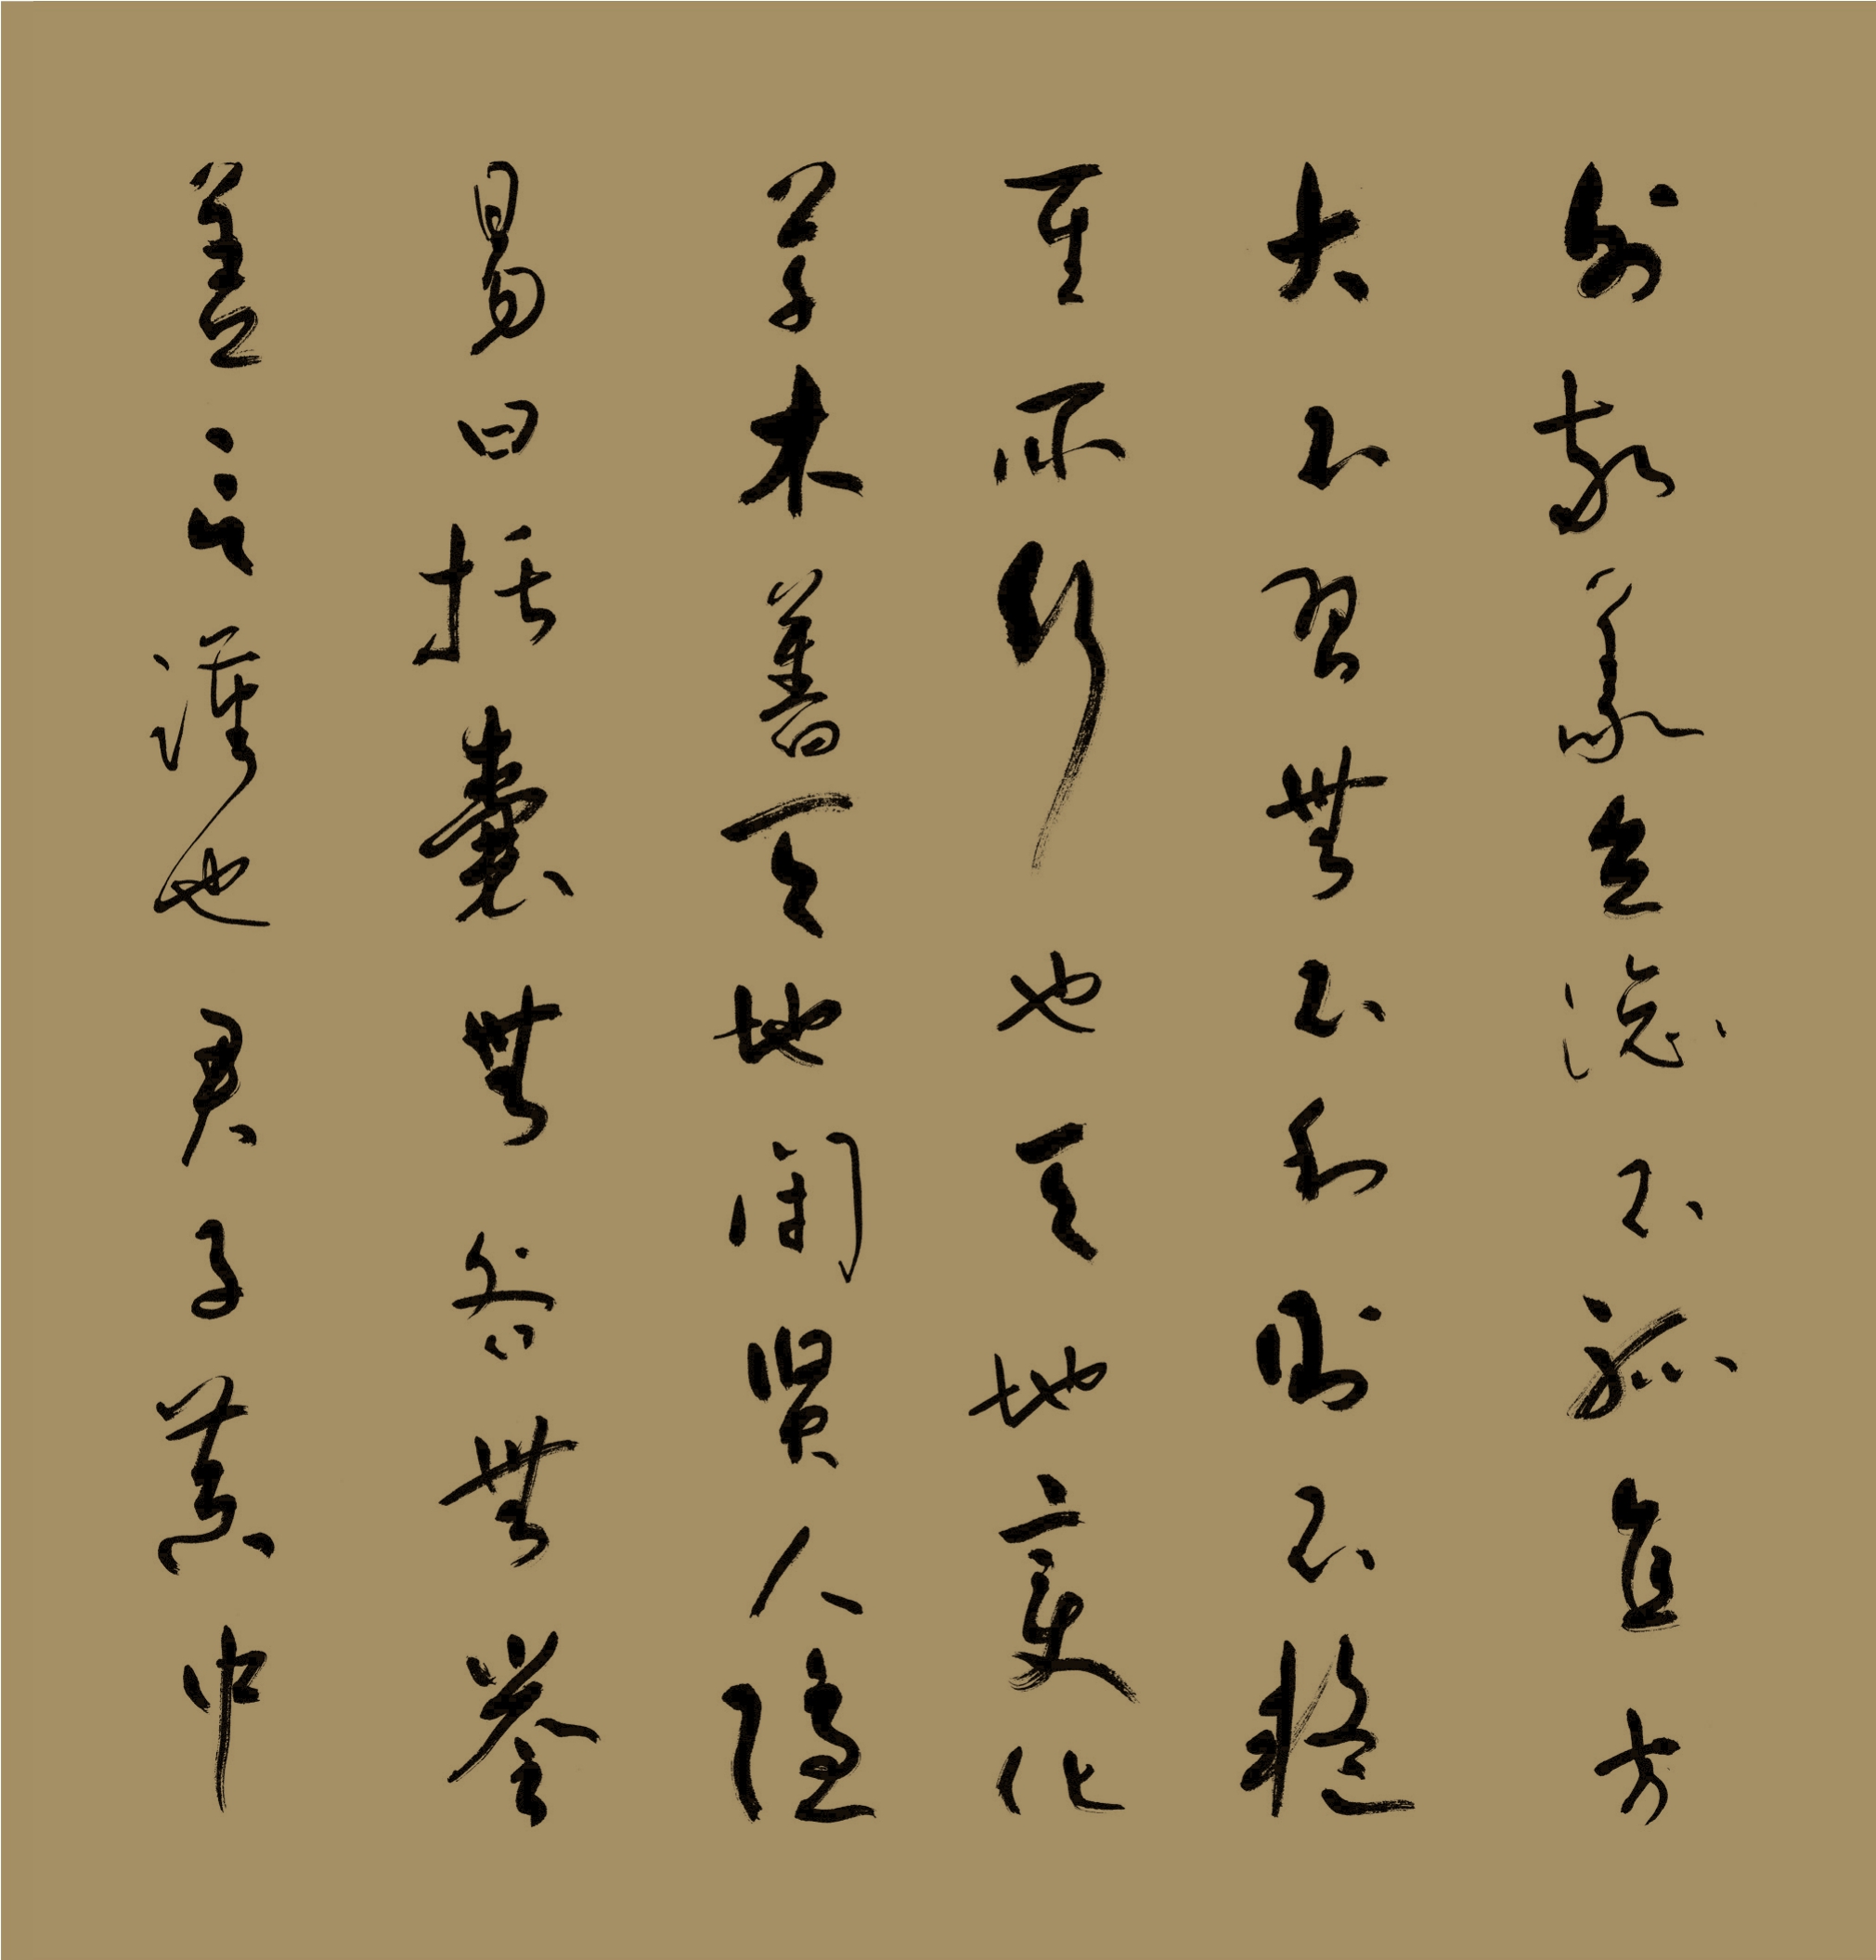 外敬義立德不孤直方
大不習無不利則不疑
其所行也天地變化
草木蕃天地閉賢人隱
易曰括囊無咎無譽
蓋言謹也君子黃中